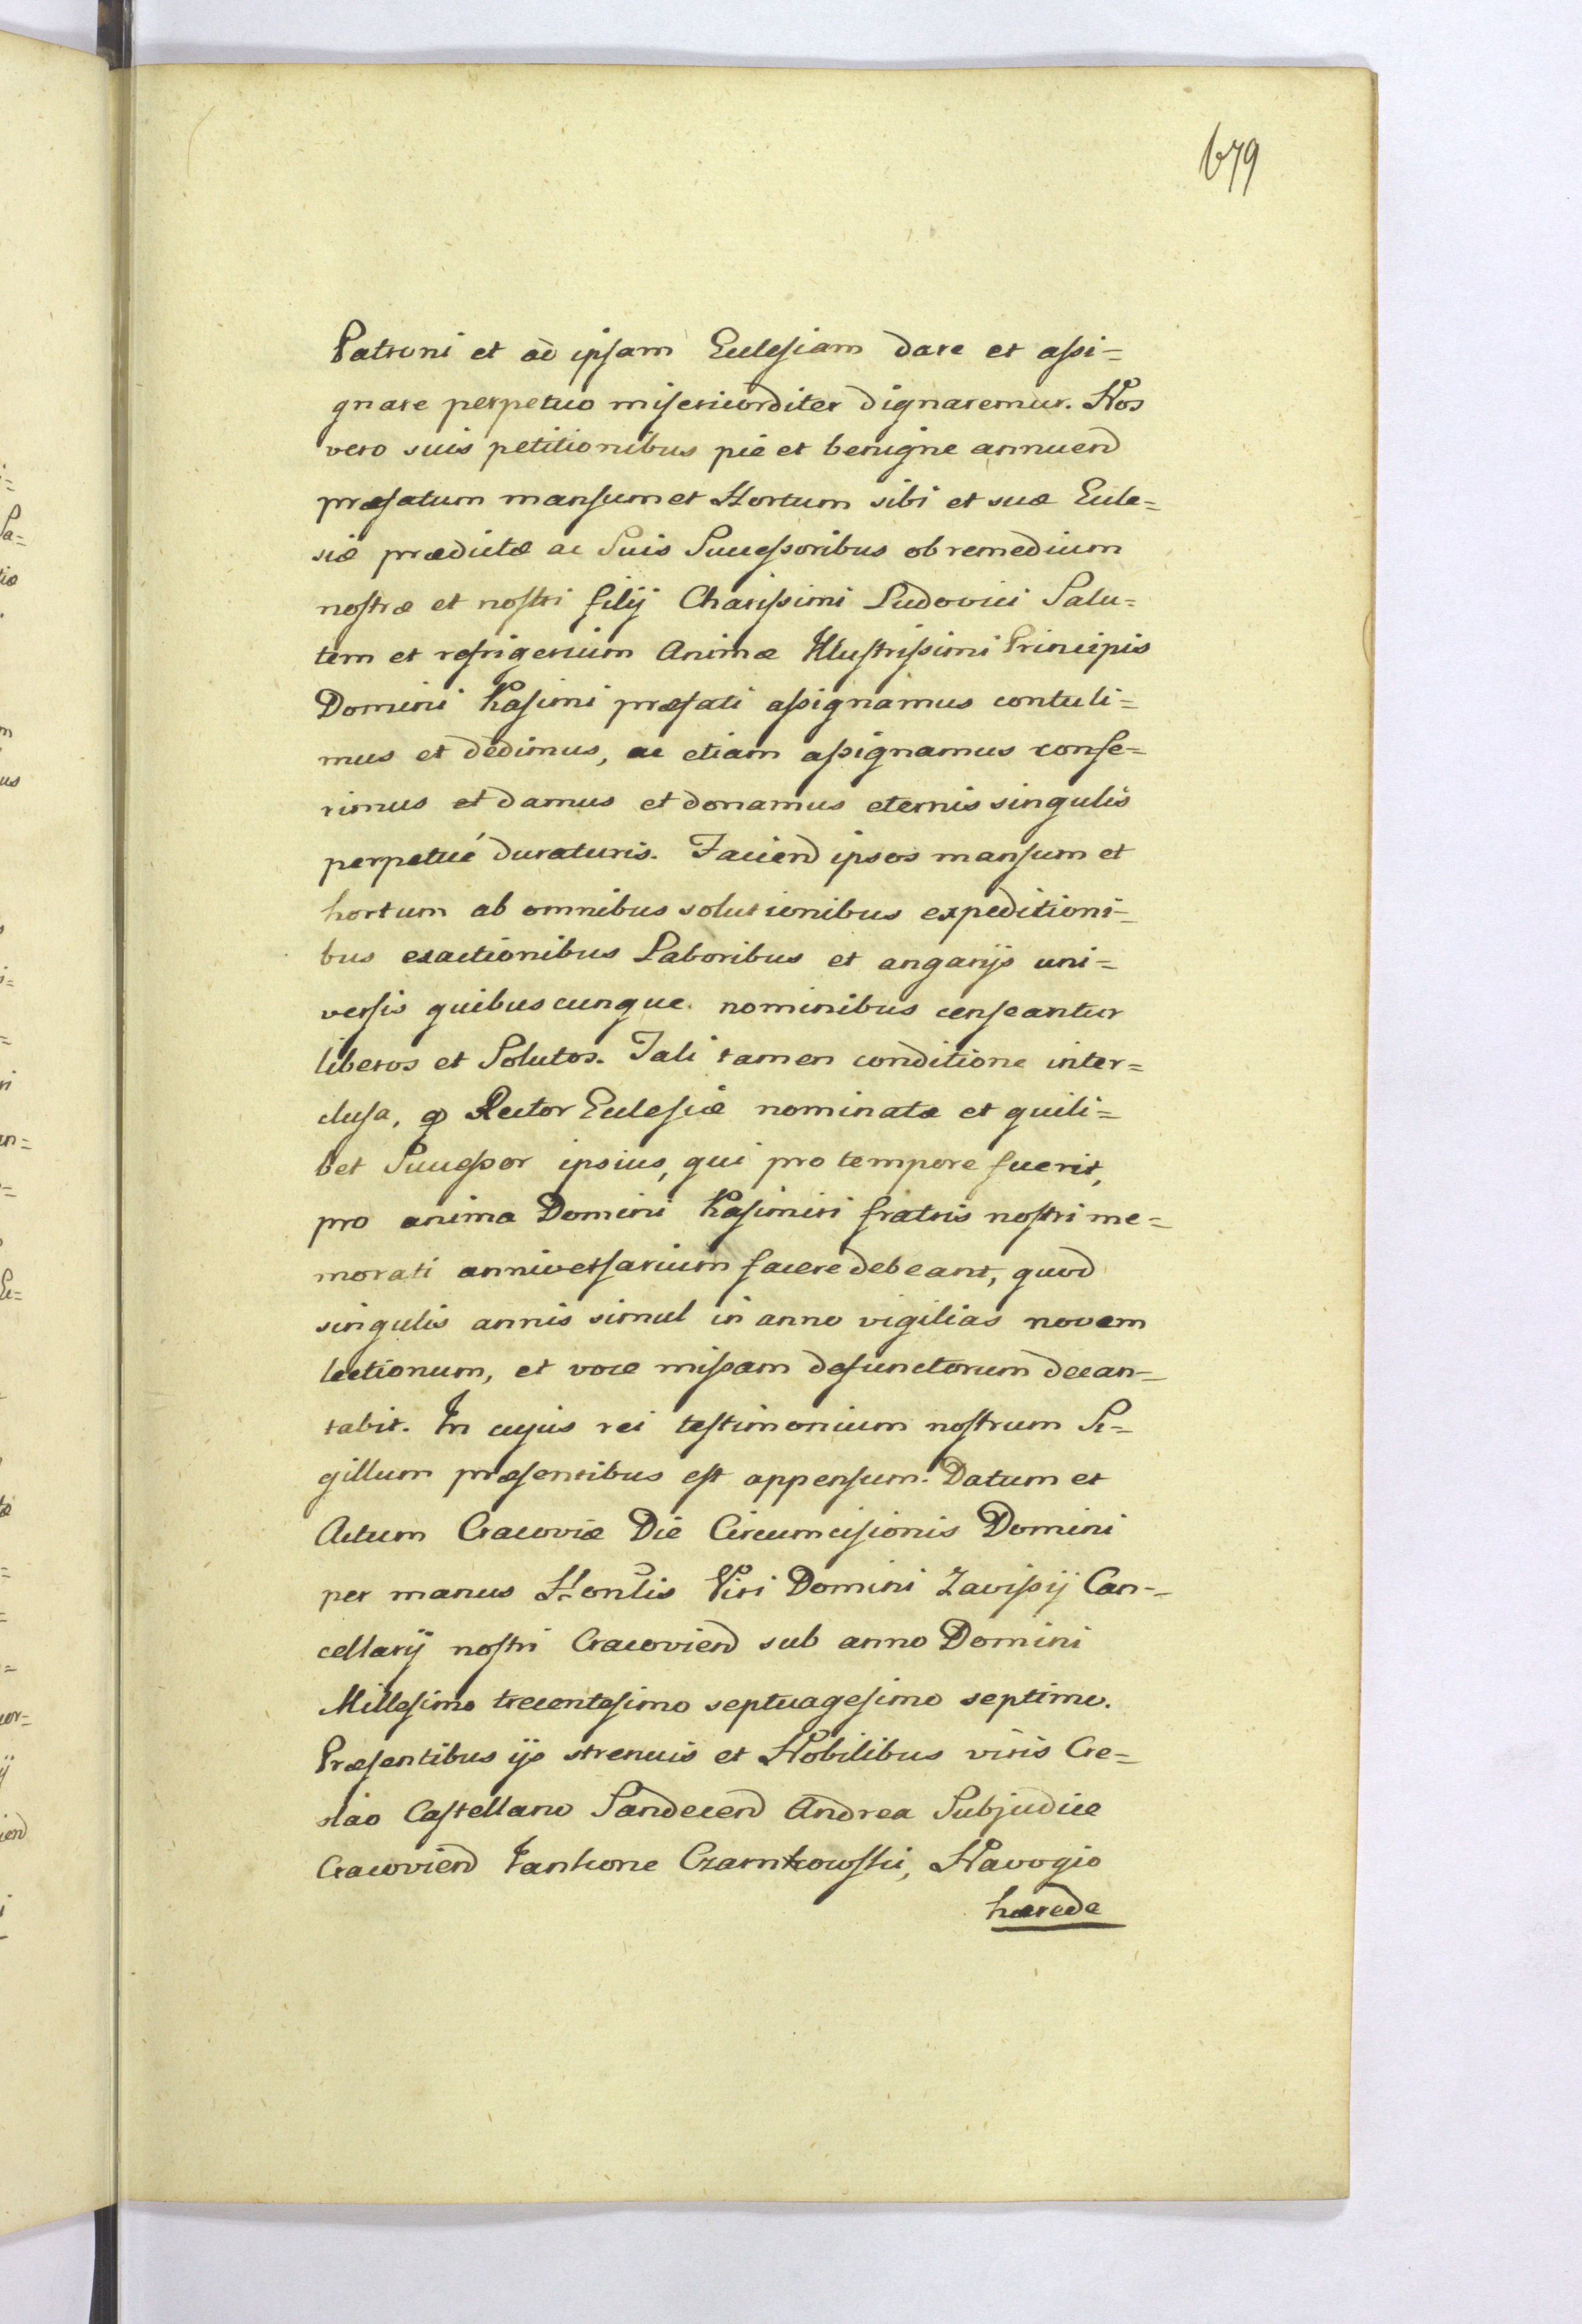 679
Patroni et ad ipsam Ecclesiam dare et assi=
gnare perpetuo misericorditer dignaremur. Nos
vero suis petitionibus pie et benigne annuend
præfatum mansum et Hortum sibi et suæ Eccle=
siæ prædictæ ac Suis Successoribus ob remedium
nostræ et nostri filij Charissimi Ludovici Salu=
tem et refrigerium Animæ Illustrissimi Principis
Domini Kasimi præfati assignamus contuli=
mus et dedimus, ac etiam assignamus confe=
rimus et damus et donamus eternis singulis
perpetué duraturis. Faciend ipsos mansum et
hortum ab omnibus solutionibus expeditioni=
bus exactionibus Laboribus et angarijs uni=
versis quibuscunque nominibus censeantur
liberos et Solutos. Tali tamen conditione inter=
clusa, q Rector Ecclesiæ nominatæ et quili=
bet Successor ipsius, qui pro tempore fuerit,
pro anima Domini Kasimiri fratris nostri me=
morati anniversarium facere debeant, quod
singulis annis simul in anno vigilias novem
lectionum, et voce missam defunctorum decan=
tabit. In cujus rei testimonium nostrum Si=
gillum præsentibus est appensum. Datum et
Actum Cracoviæ Die Circumcisionis Domini
per manus Honlis Viri Domini Zavissij Can=
cellarij nostri Cracoviend sub anno Domini
Millesimo trecentesimo septuagesimo septimo.
Præsentibus ijs strenuis et Nobilibus viris Cre=
slao Castellano Sandecend Andrea Subjudice
Cracoviend Jankone Czarnkowski, Navogio
hærede